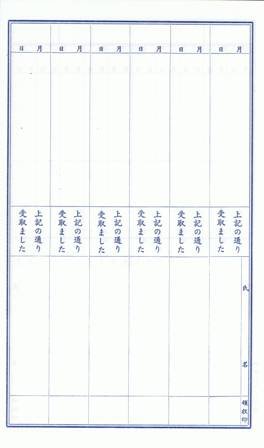 月 日
月 日
月 日
月 日
月 日
月 日
上記の通り
受取ました
上記の通り
受取ました
上記の通り
受取ました
上記の通り
受取ました
上記の通り
受取ました
上記の通り
受取ました
氏名
領収印